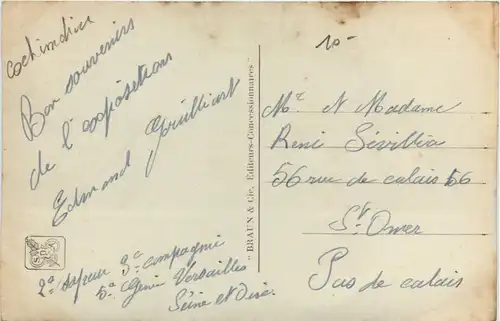 cochinchine
10-
Bon souvenirs
de l'exposition
Edmond
"BRAUN & Cie, Editeurs-Concessionnaires"
Mr et Madame
René
56 rue de calais 56
St Omer
Pas de calais
2e sapeur 3e compagnie
5e Genie Versailles
Seine et Oise.